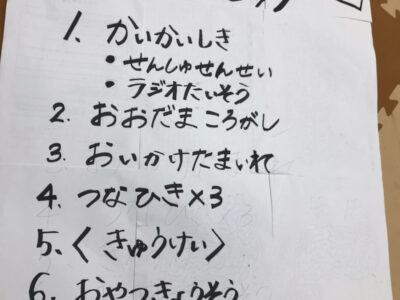 1. かいかいしき
• せんしゅせんせい
• ラジオたいそう
2. おおだまころがし
3. おいかけたまいれ
4. つなひき×3
5. 〈きゅうけい〉
6. おやつきょうそう